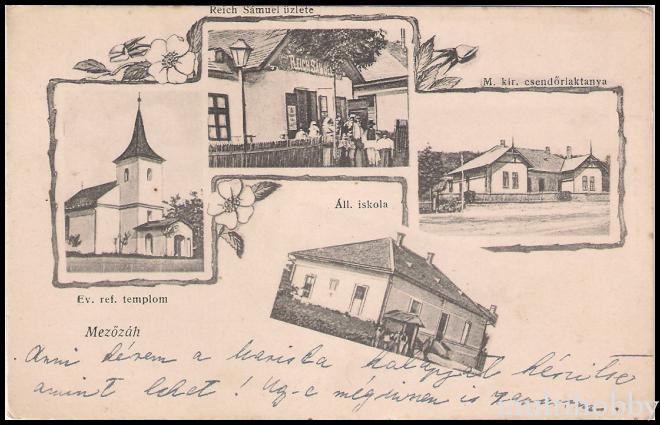 Reich Sámuel üzlete
REICH SÁMUEL
M. kir. csendőrlaktanya
Áll. iskola
Ev. ref. templom
Mezőzáh
Anni kérem a Mariska kalapját készitse
amint lehet! Ug-e mégsem is
multihobby